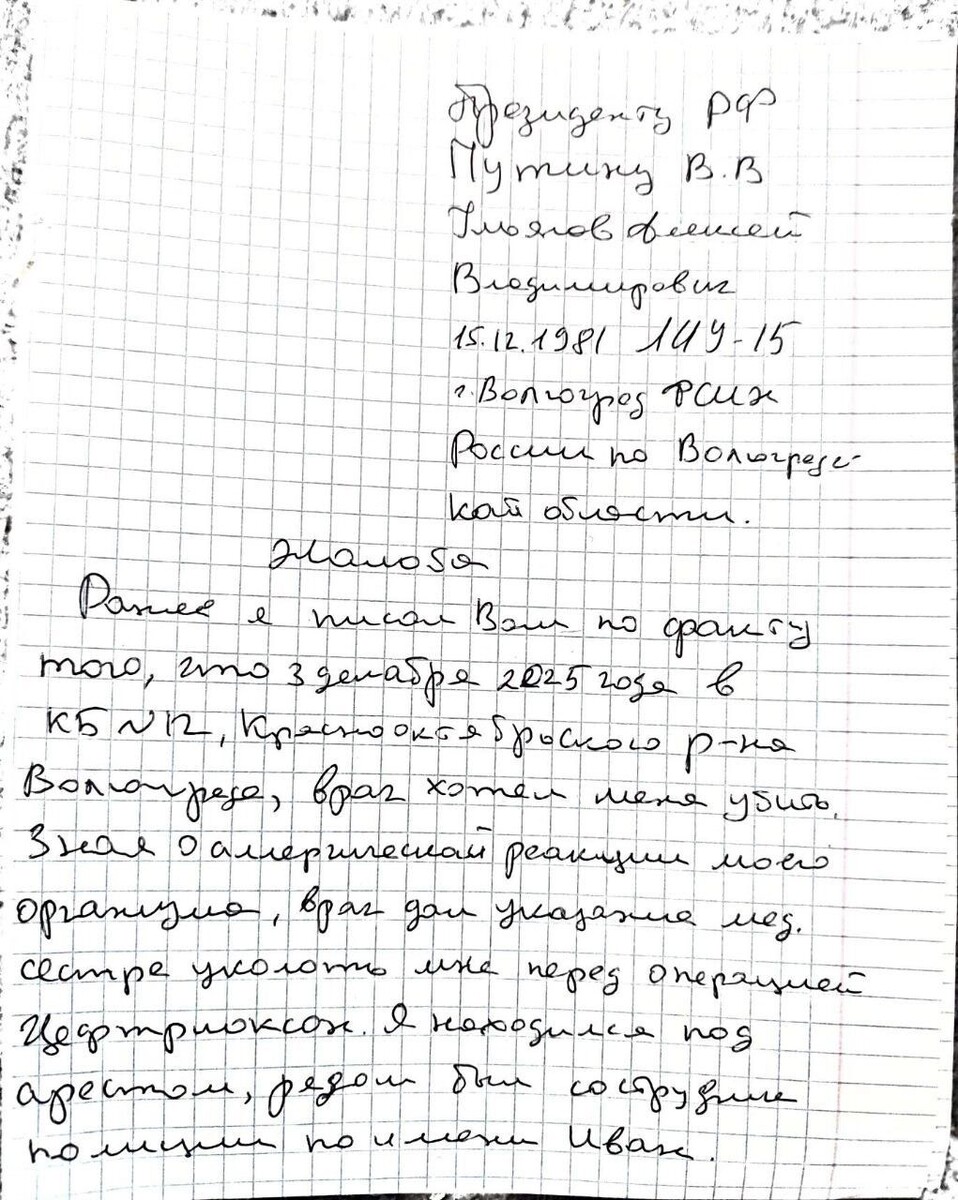 Президенту РФ
Путину В.В
Ульянов Алексей
Владимирович
15.12.1981
г. Волгоград ФСИН
России по Волгоградс-
кой области.
Жалоба
Ранее я писал Вам по факту
того, что 3 декабря 2025 года в
КБ №12, Краснооктябрьского р-на
Волгограда, врач хотел меня убить.
Зная о аллергической реакции моего
организма, врач дал указание мед.
сестре уколоть мне перед операцией
Цефтриаксон. Я находился под
арестом, рядом был сотрудник
полиции по имени Иван.